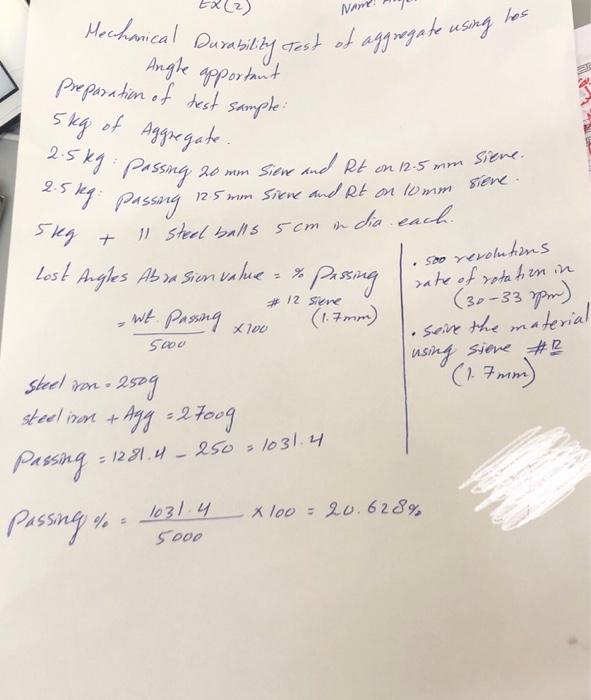 Ex(2)
Name:
Mechanical Durability test of aggregate using los
Angle apportant
preparation of test sample:
5 kg of Aggregate.
2.5 kg: passing 20 mm sieve and Rt on 12.5 mm sieve.
2.5 kg: passing 12.5 mm sieve and Rt on 10 mm sieve.
5 kg + 11 steel balls 5 cm in dia each.
Lost Angles Abrasion value = % passing
# 12 sieve
(1.7mm)
= wt. passing / 5000 x 100
steel iron = 250g
steel iron + Agg = 2700g
passing = 1281.4 - 250 = 1031.4
passing % = 1031.4 / 5000 x 100 = 20.628%
. 500 revolutions
rate of rotation in
(30-33 rpm)
. seive the material
using sieve #12
(1.7mm)